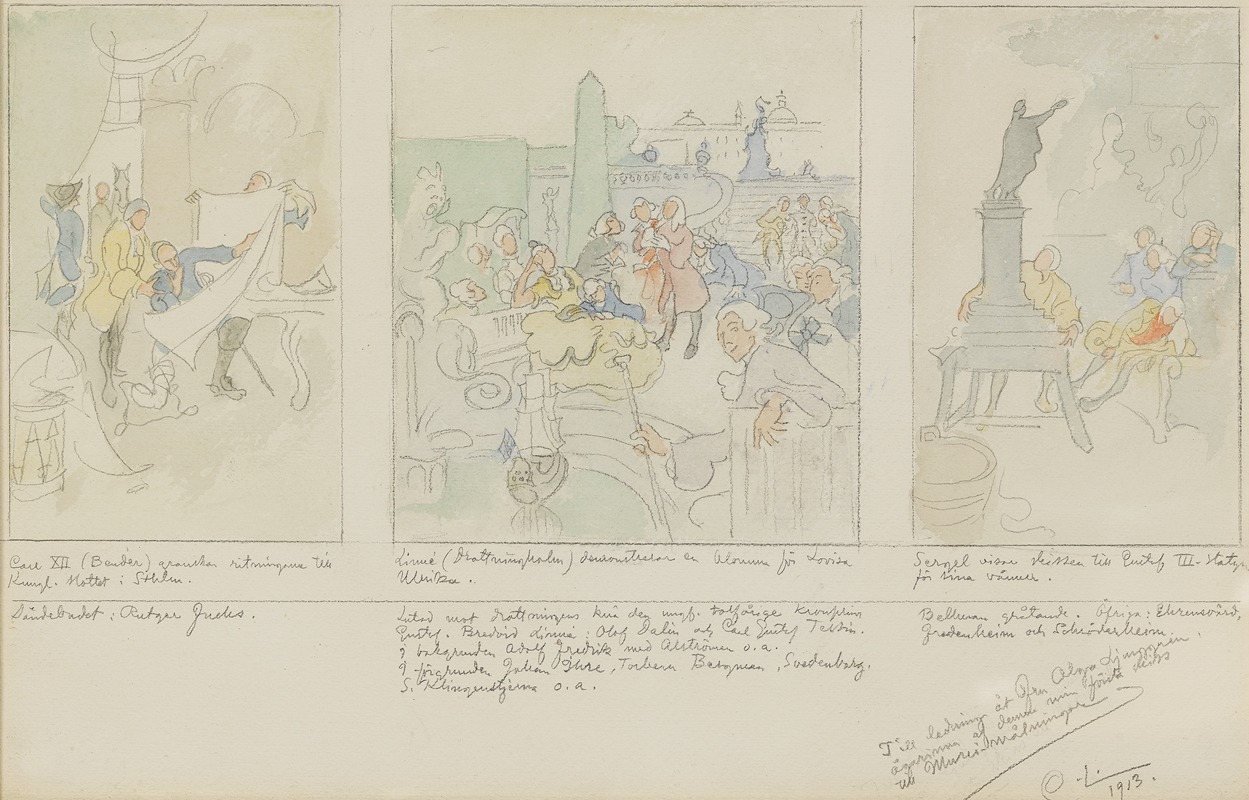 Carl XII (Bender) granskar ritningarna till
Kungl. Slottet i Sthlm.
Sändebudet: Rutger Fuchs.
Linné (Drottningholm) demonstrerar en blomma för Lovisa
Ulrika.
Lutad mot drottningens knä den ungf. tolfårige Kronprins
Gustaf. Bredvid dinna: Olof Dalin och Carl Gustaf Tessin.
I bakgrunden Adolf Fredrik med Alströmer o.a.
I förgrunden Johan Ihre, Torbern Bergman, Svedenborg,
S. Klingenstjerna o.a.
Sergel visar skissen till Gustaf III-Statyn
för sina vänner.
Bellman gråtande. Öfriga: Ehrensvärd,
Fredenheim och Schröderheim.
Till ledning åt Fru Olga Ljunggren
ägarinna af denna min första skiss
till Museimålningar
O.L.
1913.